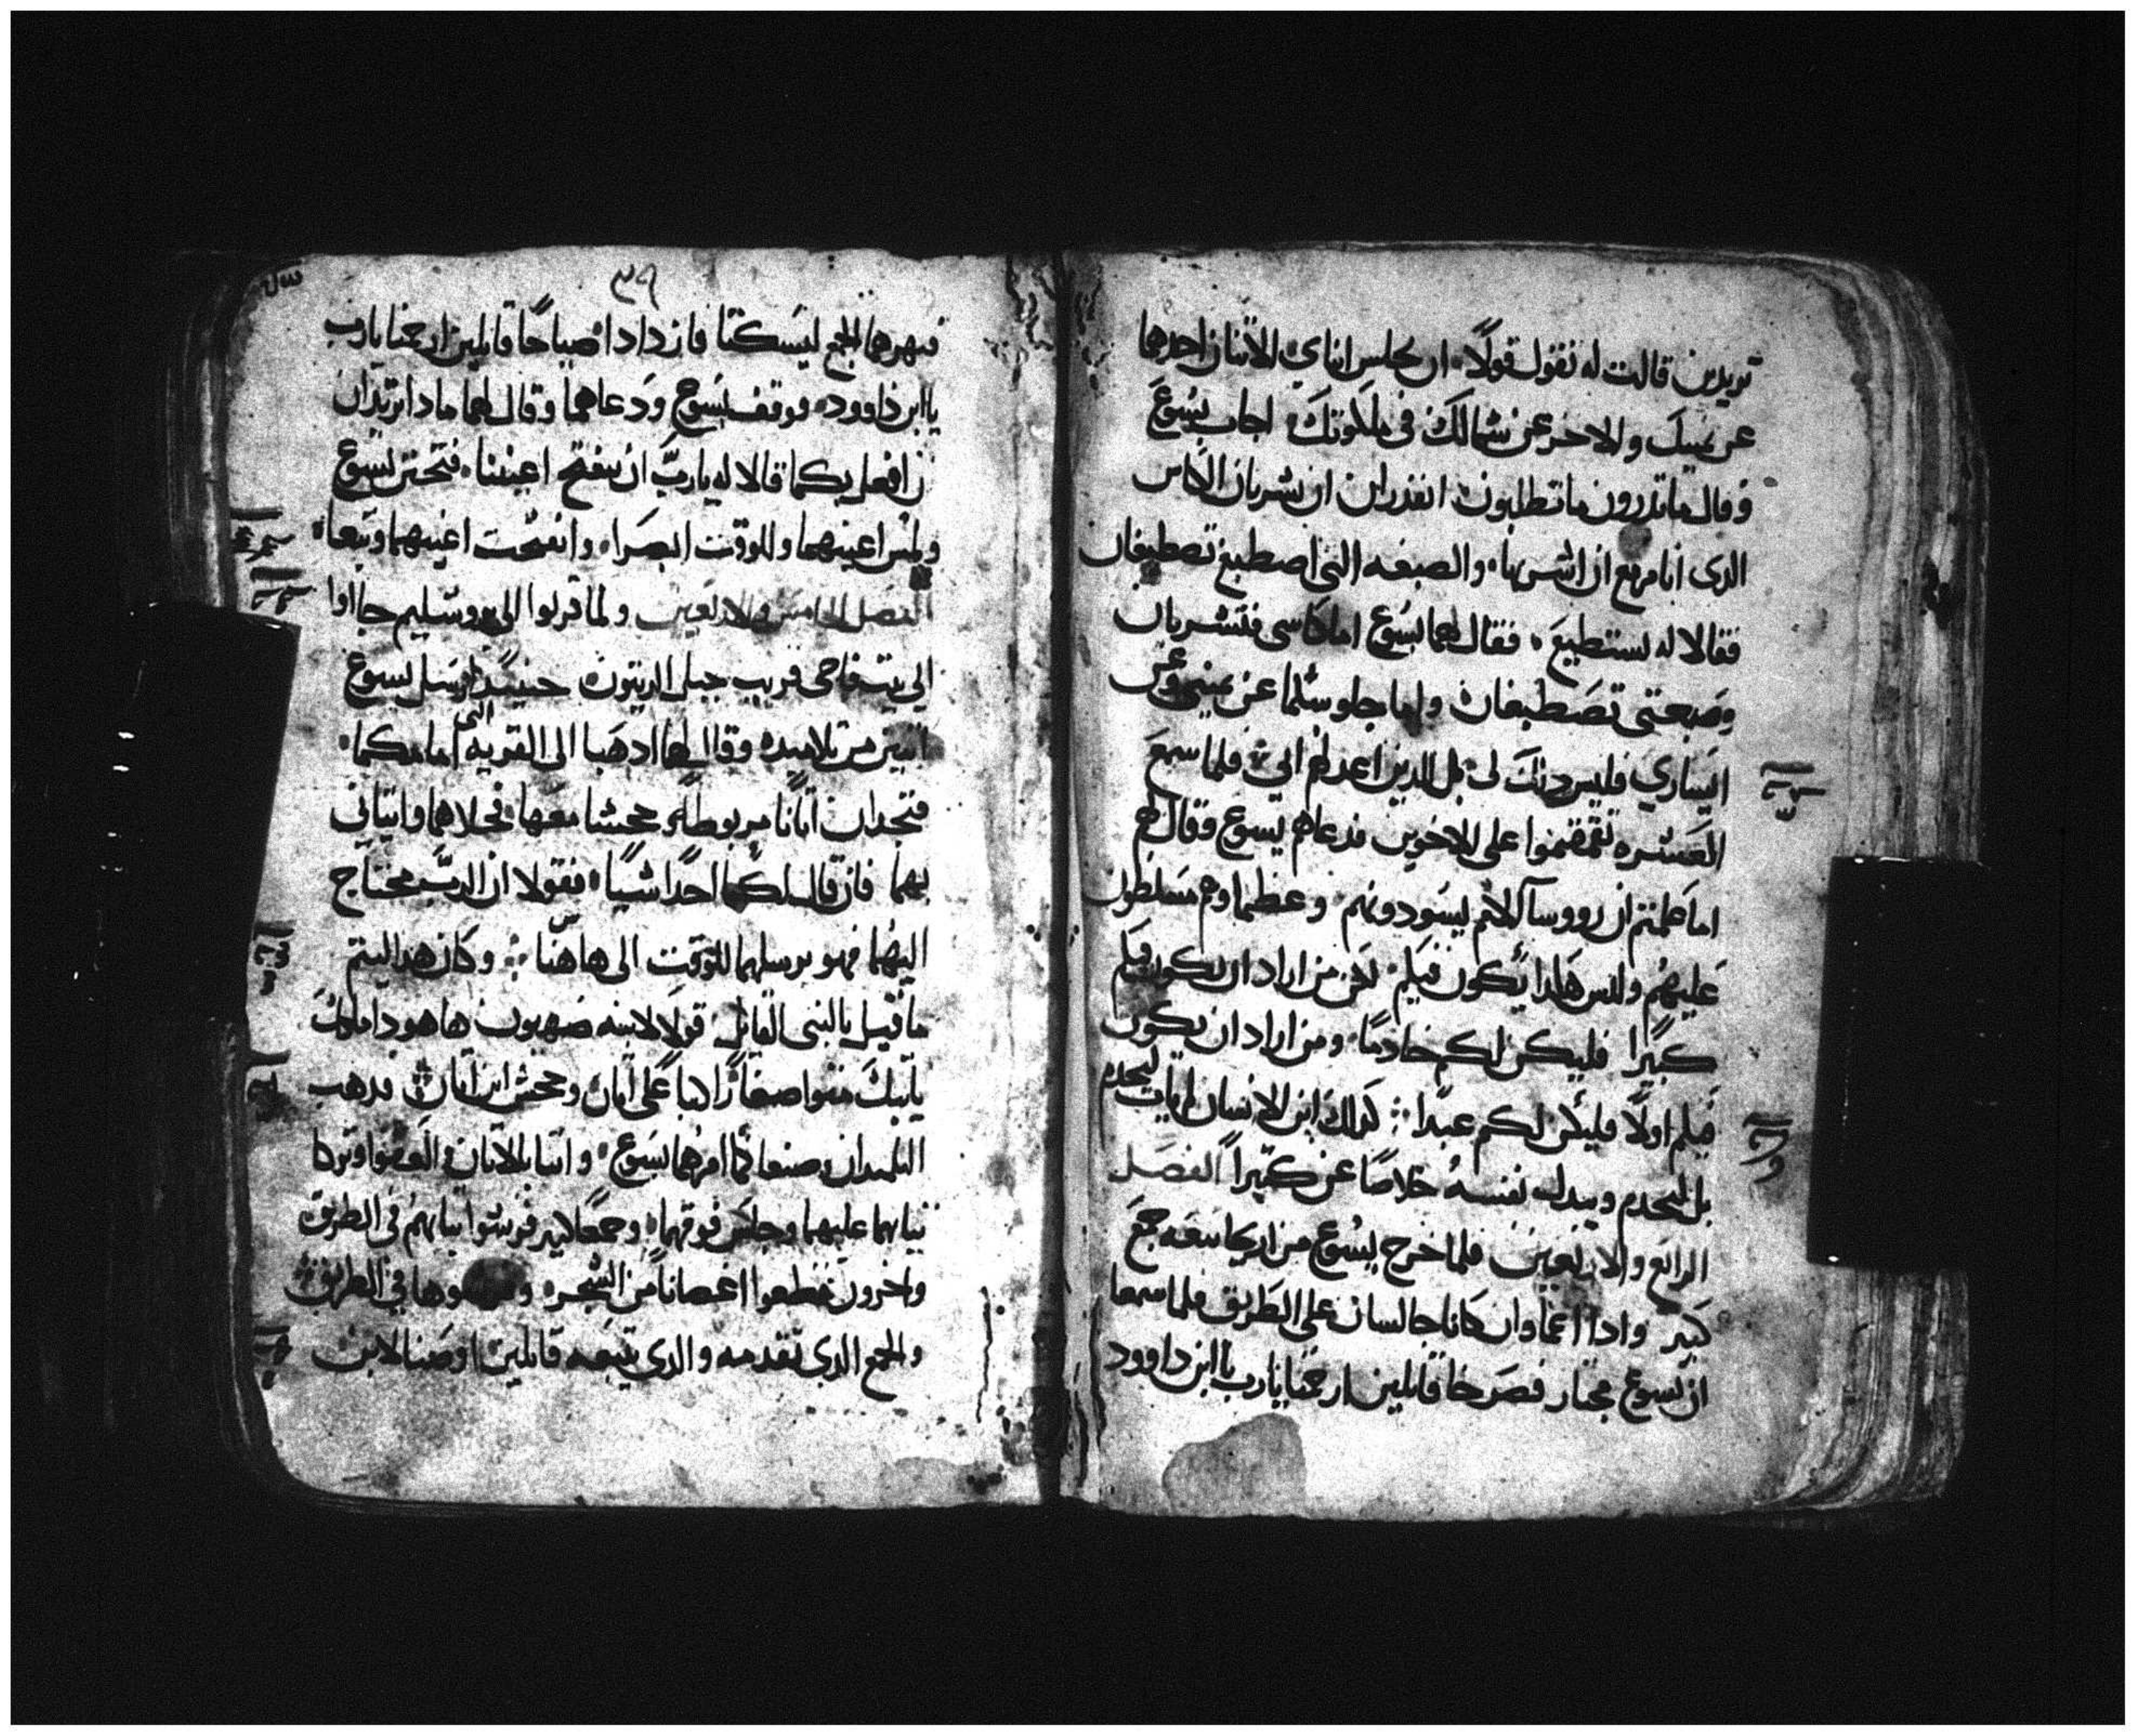 تريدين قالت له تقول قولًا ان يجلس ابناي الاثنان احدهما
عن يمينك والاخر عن شمالك في ملكوتك اجاب يسوع
وقال ما تدرون ما تطلبون اتقدران ان تشربان الكاس
الدى انا مزمع ان اشربها والصبغه التى اصطبغ تصطبغان
فقالا له نستطيع فقال لهما يسوع اما كاسى فتشربان
وصبغتى تصطبغان واما جلوسكما عن يمينى وعن
اليسارى فليس دلك لى بل للدين اعد لهم ابى فلما سمع
العشره تقمقموا على الاخوين فدعاهم يسوع وقال لهم
اما علمتم ان رووسا الامم يسودونهم وعظماوهم مسلطون
عليهم وليس هكدا يكون فيكم لكن من اراد ان يكون فيكم
كبيرا فليكن لكم خادمًا ومن اراد ان يكون
فيكم اولًا فليكن لكم عبدًا كدلك ابن الانسان لم يات ليخدم
بل ليخدم ويبدل نفسه خلاصًا عن كثيرًا الفصل
الرابع والاربعين فلما خرج يسوع من اريحا تبعه جمع
كبير وادا اعماوان كانا جالسان على الطريق فلما سمعا
ان يسوع مجتاز فصرخا قايلين ارحمنا يارب يا ابن داوود
٣٩
فنهرهما الجمع ليسكتا فازدادا صياحًا قايلين ارحمنا يارب
يا ابن داوود فوقف يسوع ودعاهما وقال لهما مادا تريدان
ان افعل بكما قالا له يارب ان تنفتح اعيننا فتحنن يسوع
ولمس اعينهما وللوقت ابصرا وانفتحت اعينهما وتبعاه
الفصل الخامس والاربعين ولما قربوا الى يروسليم جااوا
الى بيت فاجى قريب جبل الزيتون حينيد ارسل يسوع
اثنين من تلاميده وقال لهما ادهبا الى القريه التى امامكما
فتجدان اتانًا مربوطه وجحشا معها فحلاهما واتيانى
بهما فان قال لكما احدًا شييًا فقولا ان الرب محتاج
اليهما فهو يرسلهما للوقت الى هاهنا وكان هدا ليتم
ما قيل بالنبى القايل قولا لابنه صهيون هاهودا ملكك
ياتيك متواضعًا راكبًا على اتان وجحش ابن اتان فدهب
التلميدان وصنعا كما امرهما يسوع واتيا بالاتان والعفوا وتركا
ثيابهما عليهما وجلس فوقهما وجمعًا كثير فرشوا ثيابهم في الطريق
واخرون قطعوا اغصانًا من الشجر وفرشوها في الطريق
والجمع الدى تقدمه والدى تبعه قايلين اوصنا لابن